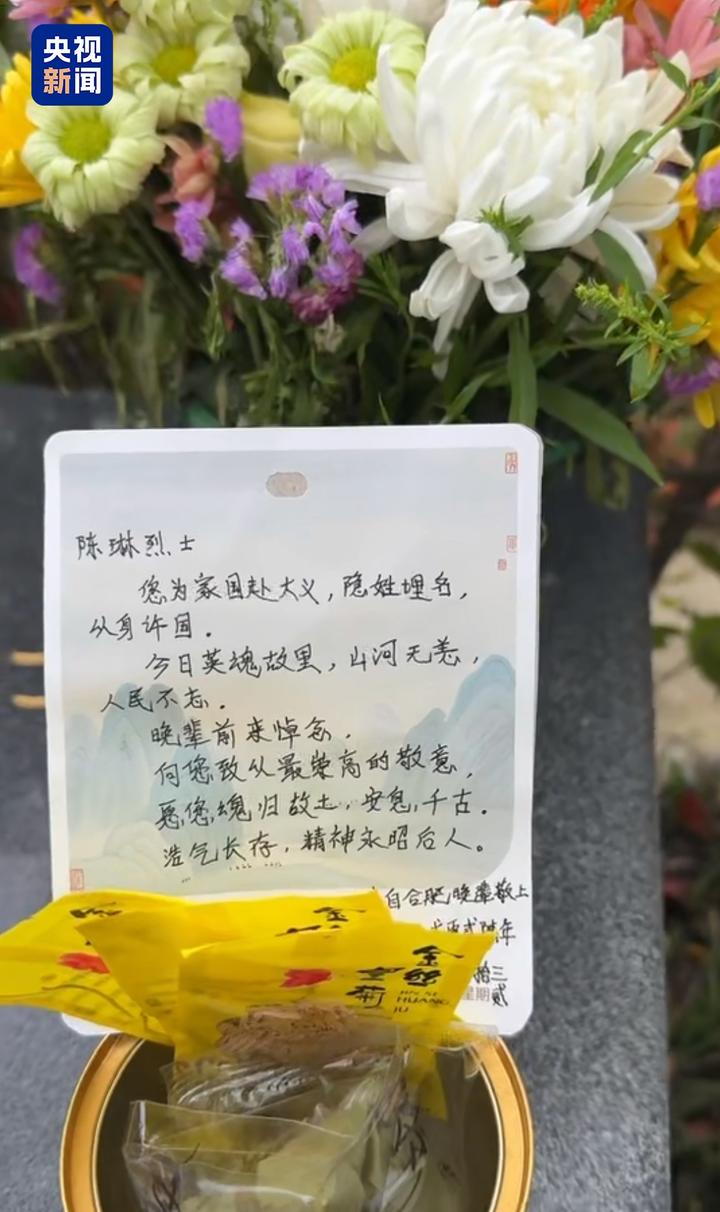 央视
新闻
陈琳烈士
您为家国赴大义，隐姓埋名，
以身许国．
今日英魂故里，山河无恙，
人民不忘．
晚辈前来悼念．
向您致以最崇高的敬意，
愿您魂归故土，安息千古．
浩气长存，精神永昭后人。
自合肥晚辈敬上
年
拾三
星期贰
金丝
皇菊
JIN SI
HUANG
JU